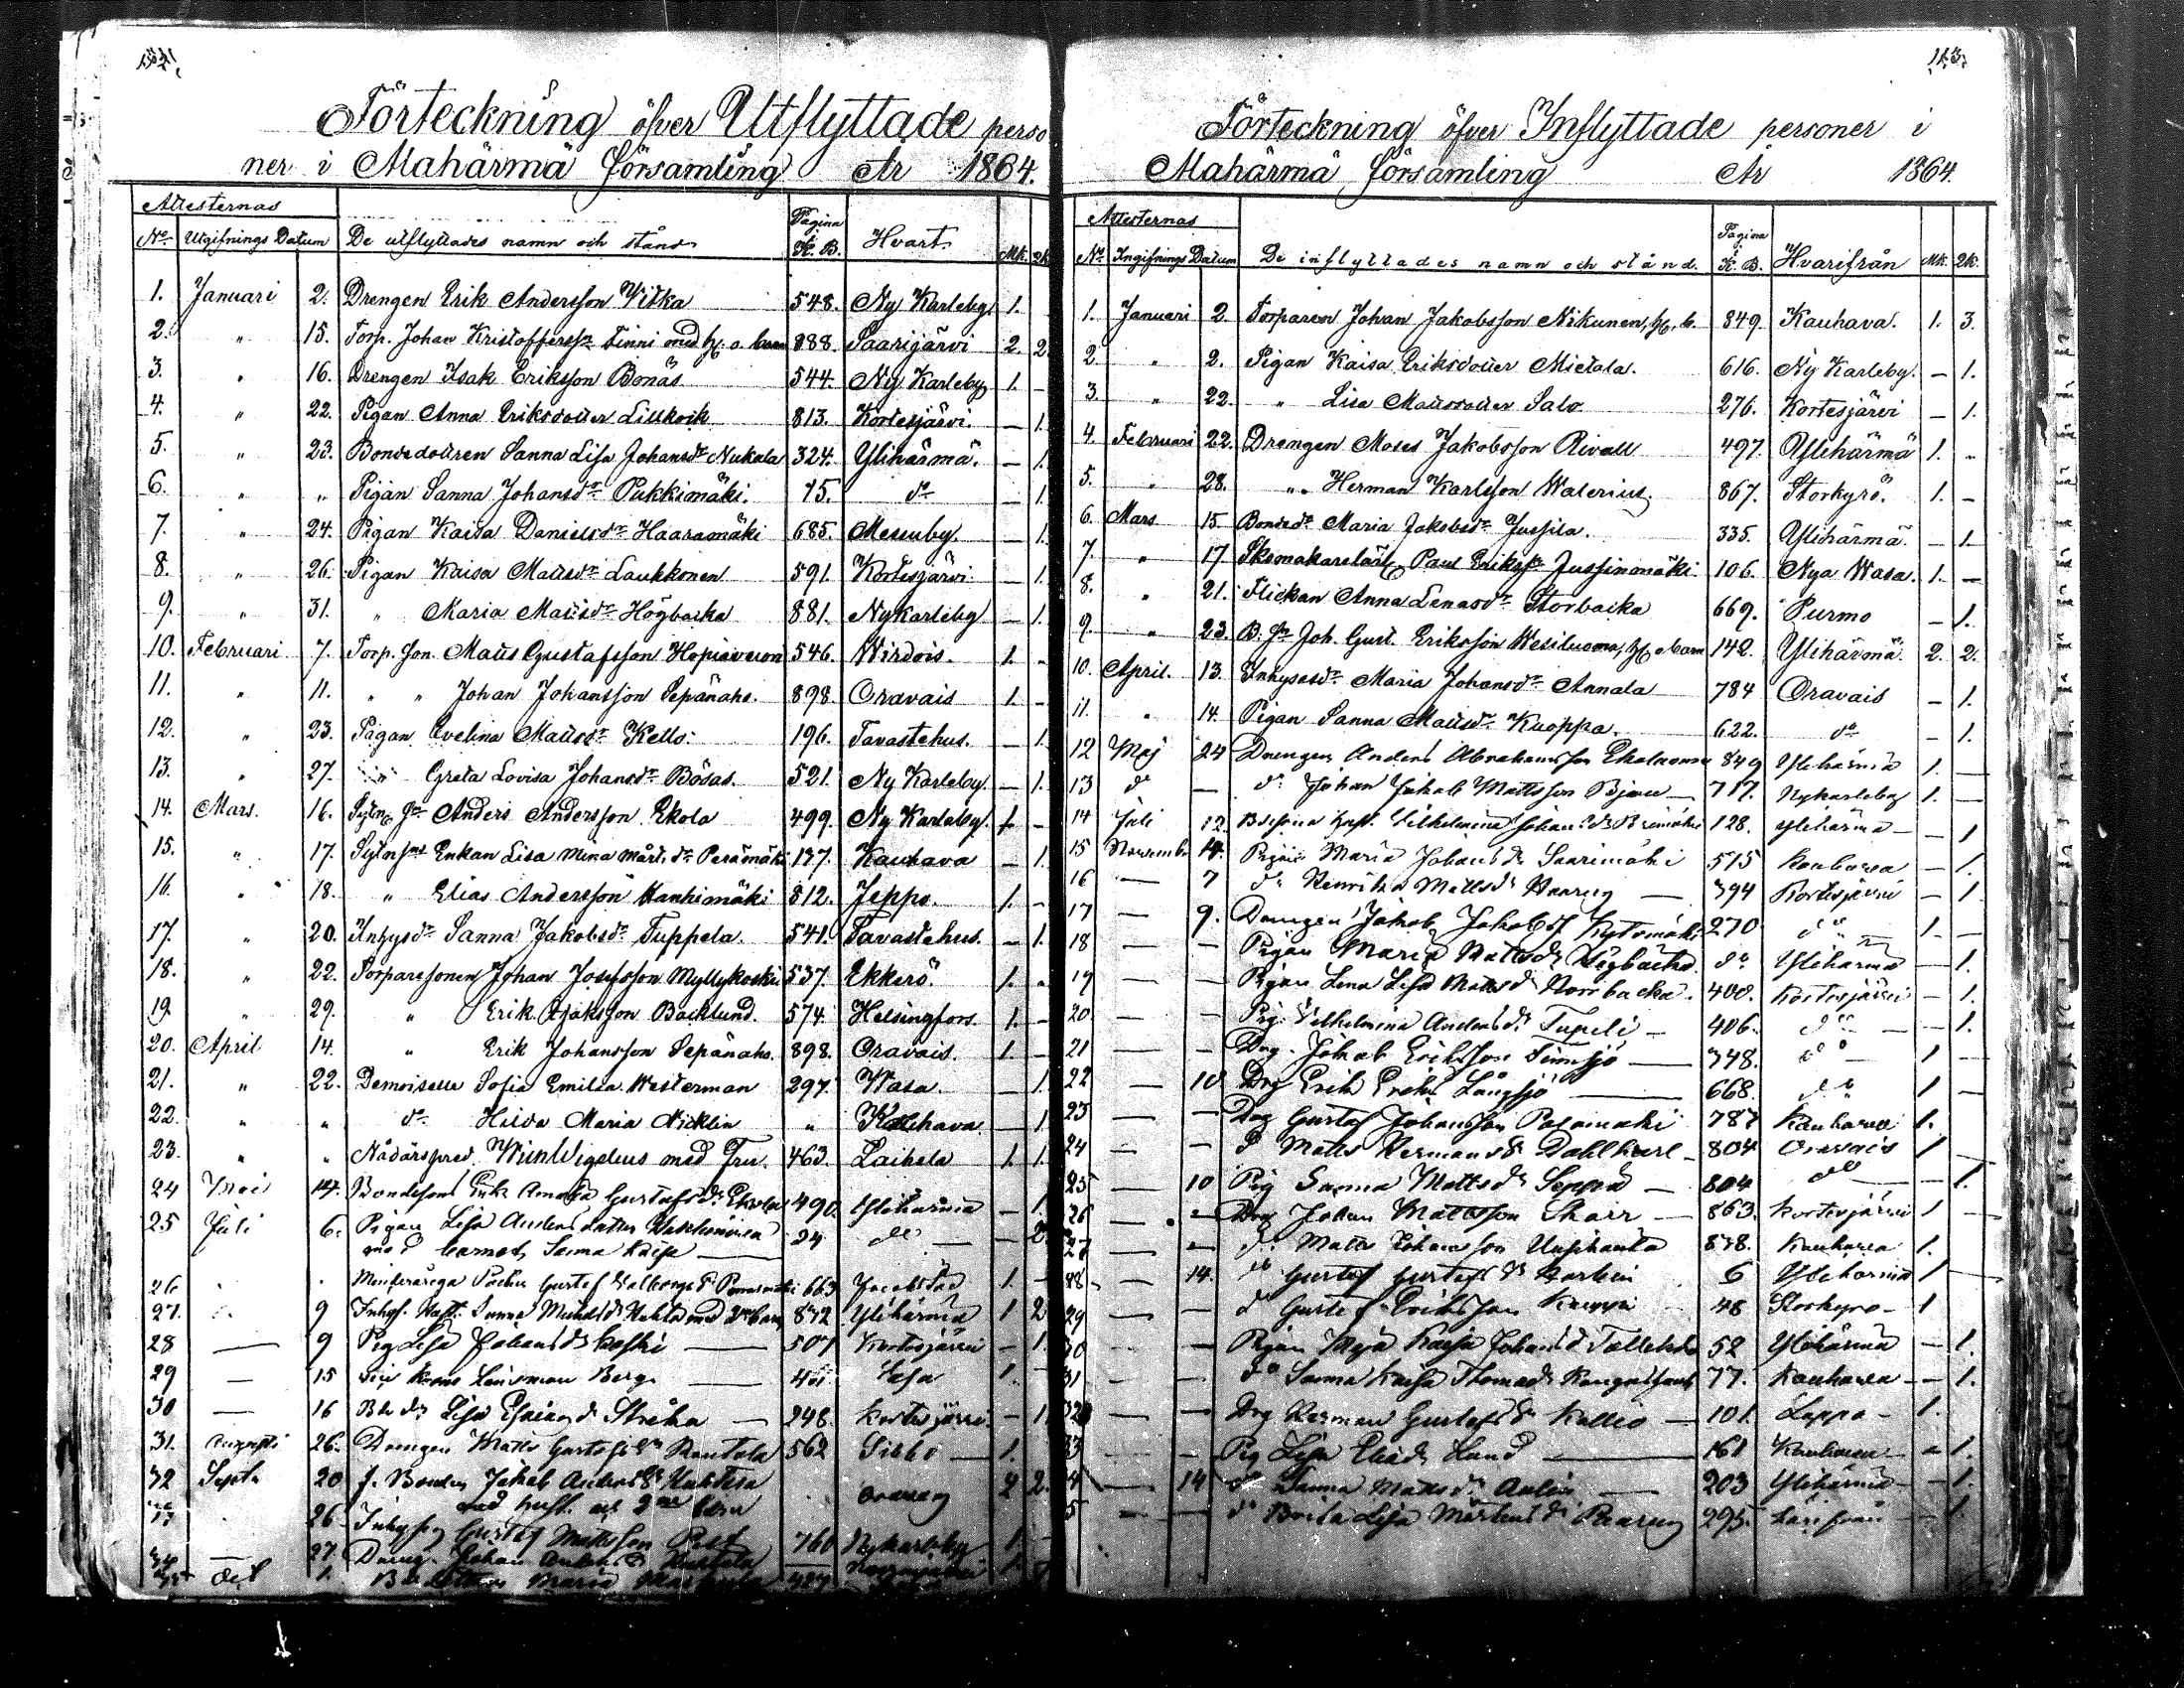 Förteckning öfver Utflyttade perso
ner i Mahärmä församling År 1864.
Attesternas
No Utgifnings Datum De utflyttades namn och stånd Pagina K. B. Hvart Mk. Qk
1. Januari 2. Drengen Erik Andersson Vitka 548. Ny Karleby 1.
2. " 15. Torp. Johan Kristoffersson Finni med h. o. barn 888. Saarijärvi 2. 2
3. " 16. Drengen Isak Eriksson Bonäs 544. Ny Karleby 1. -
4. " 22. Pigan Anna Eriksdotter Lillkoik 813. Kortesjärvi. - 1.
5. " 23. Bondedottren Sanna Lisa Johansdr Nukala 324. Ylihärmä. - 1.
6. " " Pigan Sanna Johansdr Pukkimäki. 75. do - 1.
7. " 24. Pigan Kaisa Danielsdr Haaramäki 685. Messuby. - 1.
8. " 26. Pigan Kaisa Mattsdr Laukkonen 591. Kortesjärvi - 1.
9. " 31. " Maria Mattsdr Högbacka 881. Nykarleby - 1.
10. Februari 7. Torp. son Matts Gustafsson Hopiavuori 546. Wirdois. 1. -
11. " 11. " " Johan Johansson Sepänaho. 898. Oravais 1. -
12. " 23. Pigan Evelina Mattsdr Kello. 196. Tavastehus. - 1.
13. " 27. " Greta Lovisa Johansdr Bösas. 521. Ny Karleby. - 1.
14. Mars. 16. Sytn. son Anders Andersson Ekola 499. Ny Karleby. 1 -
15. " 17. Enkan Lisa Mina Mårt.dr Perämäki 137. Kauhava - 1.
16. " 18. " Elias Andersson Hanhimäki 812. Jeppo. 1. -
17. " 20. Inhysdr Sanna Jakobsdr Tuppela. 541. Tavastehus. - 1.
18. " 22. Torparesonen Johan Josefsson Myllykoski. 537. Ekkerö. 1. -
19. " 29. " Erik Isaksson Backlund. 574. Helsingfors. 1. -
20. April 14. " Erik Johansson Sepänaho. 898. Oravais. 1. -
21. " 22. Demoiselle Sofia Emilia Westerman 297. Wasa. - 1.
22. " " do Hilda Maria Nicklin " Kauhava - 1.
23. " " Nådårspred. Wigelius med Fru. 463. Laihela 1. 1.
24 Maj 14. Bondeson Enk. Gustafsdr Ekola 490. Ylihärmä - 1.
25 Juli 6. Pigan Lisa Andersdotter 24 do - 2.
med barnet Sanna Kaisa
26 Gustaf 663 Jacobstad 1. -
27. 9 Inhys. Hust. Sanna Michelsdr Huhta med 2ne barn 872 Ylihärmä 1 2
28 — 9 Pig Lisa Johansdr Koski 507 Kortesjärvi - 1.
29 — 15 Länsman Berg. 1.
30 — 16 Lisa Stråka 248. Kortesjärvi - 1
31. Augusti 26. Drengen Matts Gustafsson Rantala 562 Sibbo 1.
32 Sept. 20 f. Bonden Jakob Huhtala Oravais 2 2.
med hust. och 2ne barn
26 Gustaf Mattsson Post 760 Nykarleby 1 -
27 Dreng. Johan
Oct 1. Maria
Förteckning öfver Inflyttade personer i
Mahärmä församling År 1864.
Attesternas
No. Ingifnings Datum De inflyttades namn och stånd. Pagina K. B. Hvarifrån Mk. Qk.
1. Januari 2. Torparen Johan Jakobsson Nikunen, h. b. 849. Kauhava. 1. 3.
2. " 2. Pigan Kaisa Eriksdotter Mietala. 616. Ny Karleby. - 1.
3. " 22. " Lisa Mattsdotter Salo. 276. Kortesjärvi - 1.
4. Februari 22. Drengen Moses Jakobsson Rivall 497. Ylihärmä 1. "
5. " 28. " Herman Karlsson Walerius. 867. Storkyro. 1. -
6. Mars 15 Bondedr Maria Jakobsdr Jussila. 335. Ylihärmä. - 1.
7. " 17. Skomakarelärl. Paul Eriksson Jussinmäki 106. Nya Wasa. 1. -
8. " 21. Flickan Anna Lenasdr Storbacka 669. Purmo - 1.
9. " 23. B. son Joh. Gust. Eriksson Wesiluoma, h. o barn 142. Ylihärmä. 2. 2.
10. April. 13. Inhysesdr Maria Johansdr Annala 784 Oravais - 1.
11. " 14. Pigan Sanna Mattsdr Kuoppa. 622. do - 1.
12 Maj 24 Drengen Anders Abrahamsson Ekoluoma 849 Ylihärmä 1. —
13 do — do Johan Jakob Mattsson Björn 717. Nykarleby 1. —
14 Juli 12. Hust. Vilhelmina 128. Ylihärmä — 1
15 Novemb. 4. Pigan Maria Johansdr Saarimäki 515 Kauhava — 1.
16 — 7 do Henrika Mattsdr Haarus 394 Kortesjärvi — 1
17 — 9. Drengen Jakob Jakobss. Kytömäki 270 do 1. —
18 — — Pigan Maria Mattsdr Högbacka do Ylihärmä — 1.
19 — — Pigan Lena Lisa Mattsdr Norrbacka. 400. Kortesjärvi — 1.
20 — — Pig. Vilhelmina Andersdr Tupeli 406. do — 1.
21 — — Drg. Jakob Eriksson 348. do 1 —
22 — 10 Drg Erik Långsjö 668. do 1 —
23 — — Drg Gustaf Johansson Palomäki 787 Kauhava 1.
24 — — do Matts Hermanss. Dahlkarl 804 Oravais 1
25 — 10 Pig Sanna Mattsdr Seppä 804 do — 1.
26 — — Drg Johan Mattsson Skarr 863. Kortesjärvi 1 —
27 — — do Matts Johansson 838. Kauhava 1.
28 — 14. do Gustaf Gustafss. 6 Ylihärmä 1
29 — — do Gustaf Eriksson Kuoppa 48 Storkyro 1
30 — — Pigan Maja Kaisa Johansdr 52 Ylihärmä — 1.
31 — — do Sanna Kaisa Thomasdr 77. Kauhava — 1.
32 — — Drg Herman Gustafss. Kallio 101. Lappo 1.
33 — — Pig Lisa Eliasdr Lund 161 Kauhava — 1.
4 — 14 do Sanna Mattsdr 203 Ylihärmä — 1.
5 — — do Brita Lisa Mårtensdr 295. — 1.